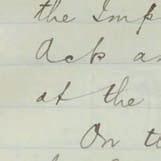 the Imp
Ack an
at the
On th